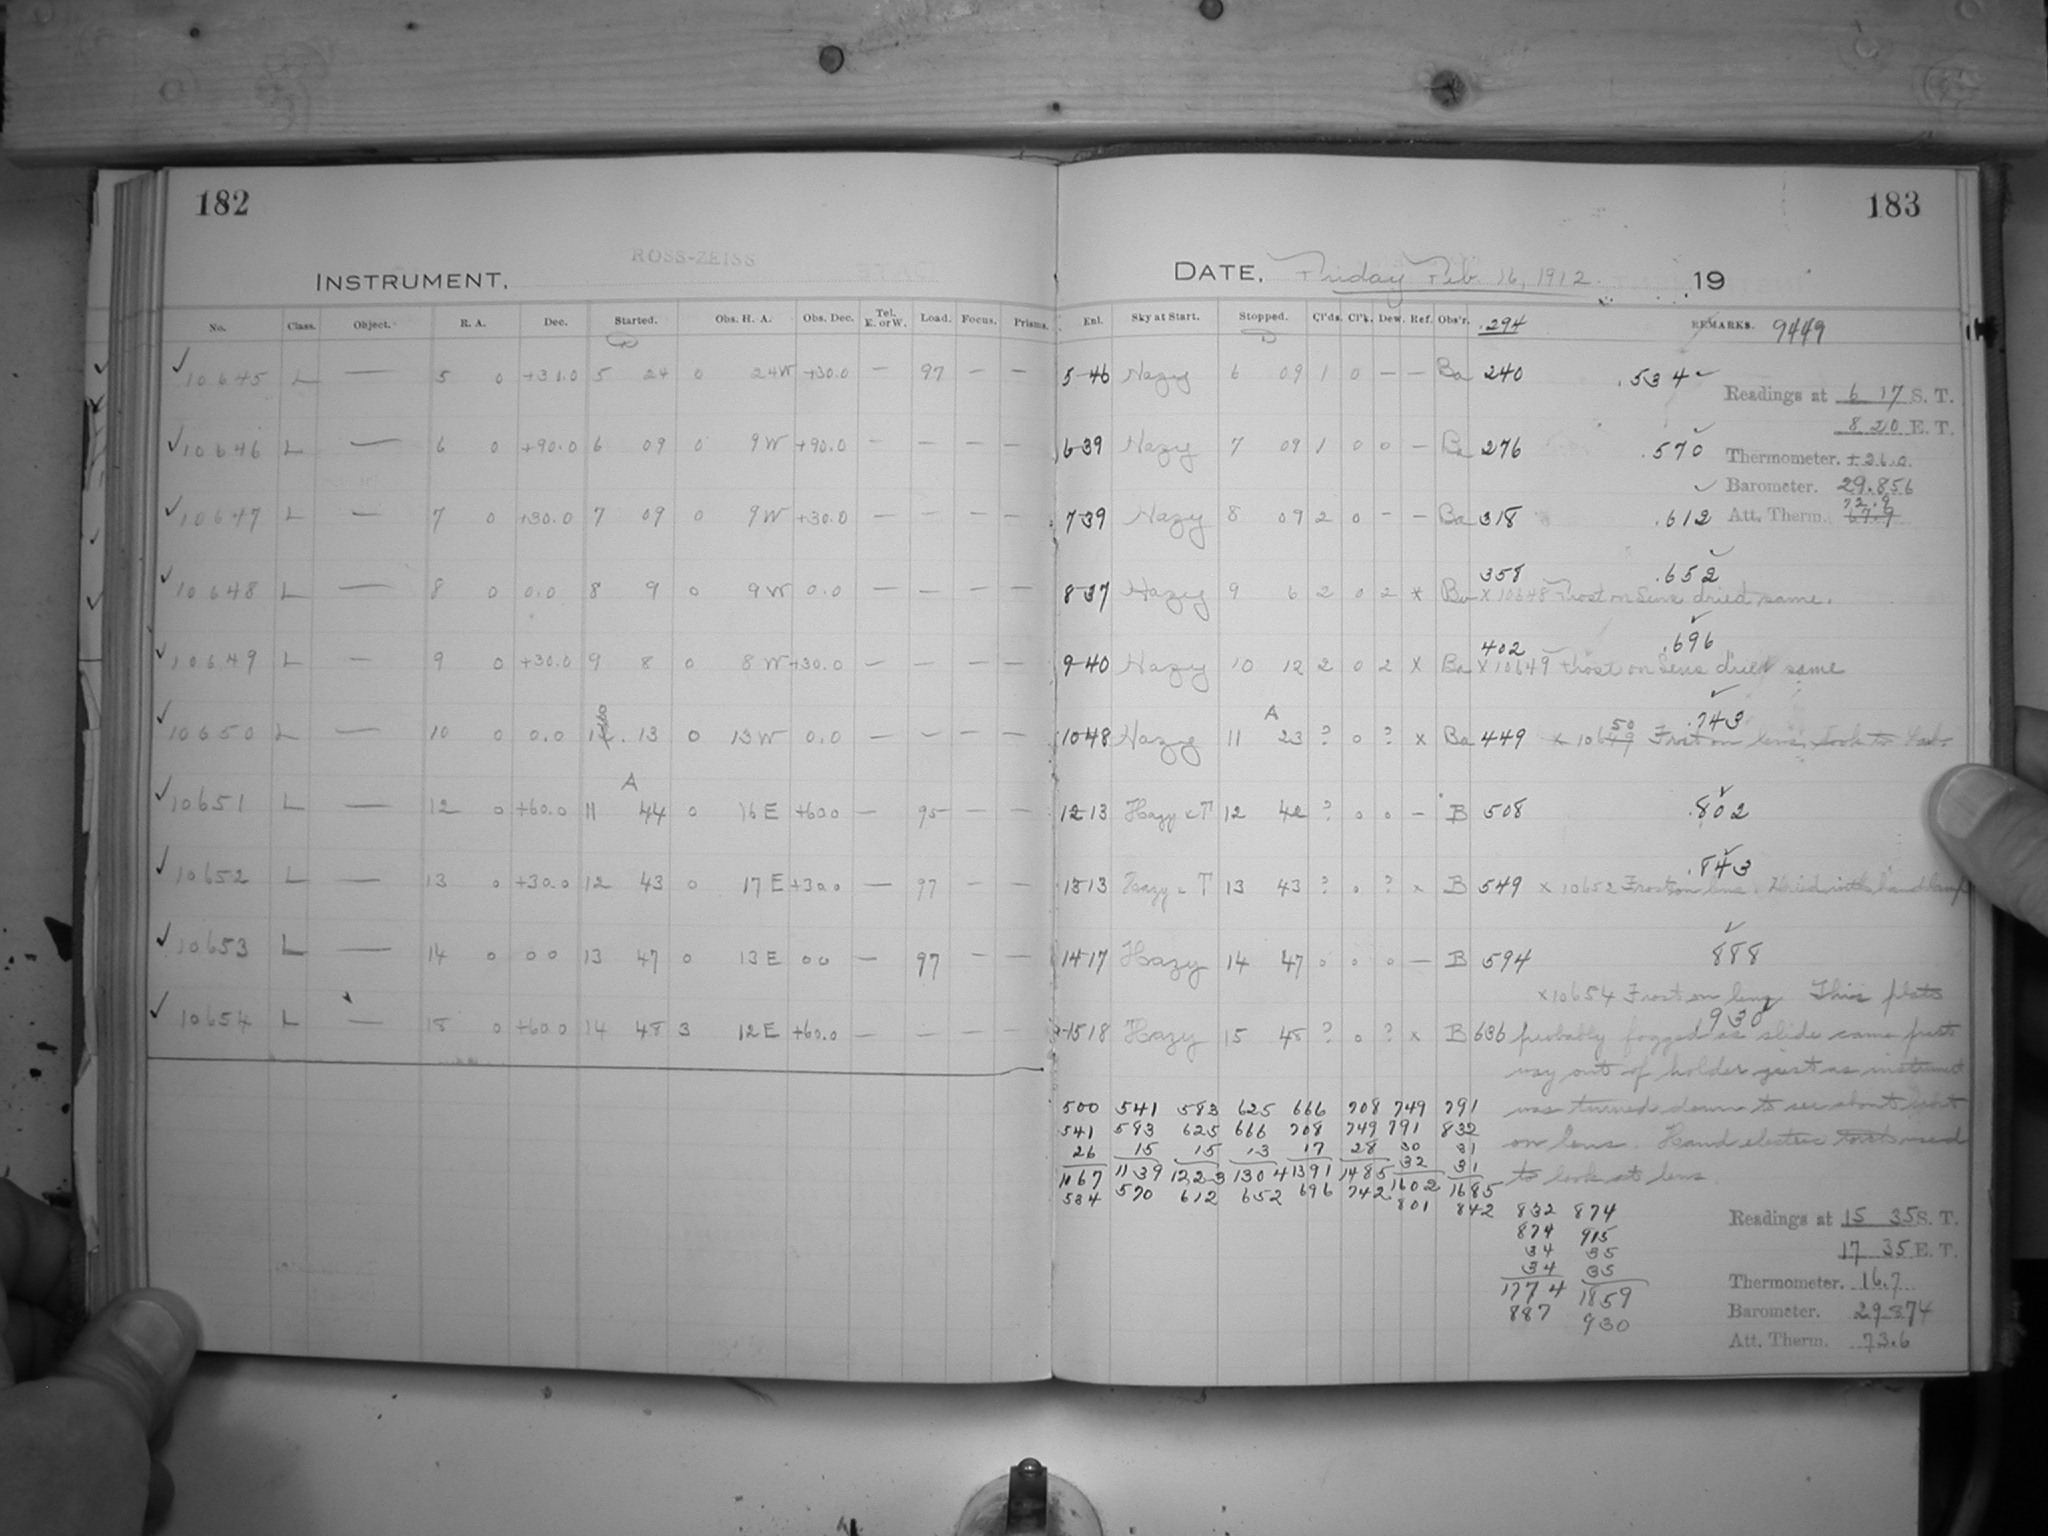 182
ROSS-ZEISS
INSTRUMENT,
No. Class. Object. R. A. Dec. Started. Obs. H. A. Obs. Dec. Tel. E. or W. Load. Focus. Prisms.
10645 L — 5 0 +31.0 5 24 0 24W +30.0 — 97 — —
10646 L — 6 0 +90.0 6 09 0 9W +90.0 — — — —
10647 L — 7 0 +30.0 7 09 0 9W +30.0 — — — —
10648 L — 8 0 0.0 8 9 0 9W 0.0 — — — —
10649 L — 9 0 +30.0 9 8 0 8W +30.0 — — — —
10650 L — 10 0 0.0 13 0 13W 0.0 — — — —
A
10651 L — 12 0 +60.0 11 44 0 16E +60.0 — 95 — —
10652 L — 13 0 +30.0 12 43 0 17E +30.0 — 97 — —
10653 L — 14 0 00 13 47 0 13E 00 — 97 — —
10654 L — 15 0 +60.0 14 48 3 12E +60.0 — — — —
183
DATE, Friday Feb. 16, 1912. 19
Enl. Sky at Start. Stopped. Cl'ds. Cl'k. Dew. Ref. Obs'r. .294 REMARKS. 9449
5-46 Hazy 6 09 1 0 — — Ba 240 .534
Readings at 6 17 S. T.
8 20 E. T.
6-39 Hazy 7 09 1 0 0 — Ba 276 .570
Thermometer. +26.0
Barometer. 29.856
72.9
7-39 Hazy 8 09 2 0 — — Ba 318 .612
Att. Therm. 67.9
358 .652
8-37 Hazy 9 6 2 0 2 * Ba x 10648 Frost on lens dried same.
402 .696
9-40 Hazy 10 12 2 0 2 x Ba x 10649 Frost on lens dried same
A 50 .743
10-48 Hazy 11 23 ? 0 ? x Ba 449 x 10649 Frost on lens, took to
12-13 Hazy & T 12 42 ? 0 0 — B 508 .802
.843
13-13 Hazy & T 13 43 ? 0 ? x B 549 x 10652 Frost on lens. Dried with hand lamp
14-17 Hazy 14 47 0 0 0 — B 594 888
x 10654 Frost on lens. This plate
930
15 18 Hazy 15 48 ? 0 ? x B 636 probably fogged as slide came part
way out of holder just as instrument
was turned down to see about frost
on lens. Hand electric torch used
to look at lens
500 541 583 625 666 708 749 791
541 583 625 666 708 749 791 832
26 15 15 13 17 28 30 31
32 31
1067 1139 1223 1304 1391 1485 1602 1685
534 570 612 652 696 742 801 842
832 874
874 915
34 35
34 35
1774 1859
887 930
Readings at 15 35 S. T.
17 35 E. T.
Thermometer. 16.7
Barometer. 29.874
Att. Therm. 73.6